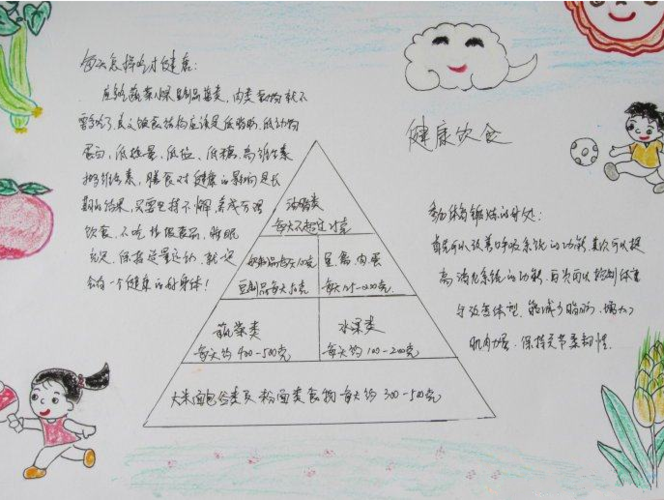 每天怎样吃才健康:
应给蔬菜水果豆制品菌类,肉类食物就不
需多吃了,总之饮食结构应该是低脂肪,低动物
蛋白,低热量,低盐、低糖,高维生素
维生素,膳食对健康的影响是长
期的结果,只要坚持不懈 养成合理
饮食,不吃垃圾食品,睡眠
充足,保持适量运动,就一定
会有一个健康的好身体!
健康饮食
油脂类
每天不超过25克
奶制品每天100克
豆制品每天50克
鱼、禽、肉、蛋
每天125-200克
蔬菜类
每天约400-500克
水果类
每天约100-200克
大米面包谷类及粉面类食物每天约300-500克
参加体育锻炼的好处:
首先可以改善呼吸系统的功能,其次可以提
高消化系统的功能,再次可以控制体重
与改善体型,能减少脂肪,增加
肌肉力量,保持关节柔韧性.